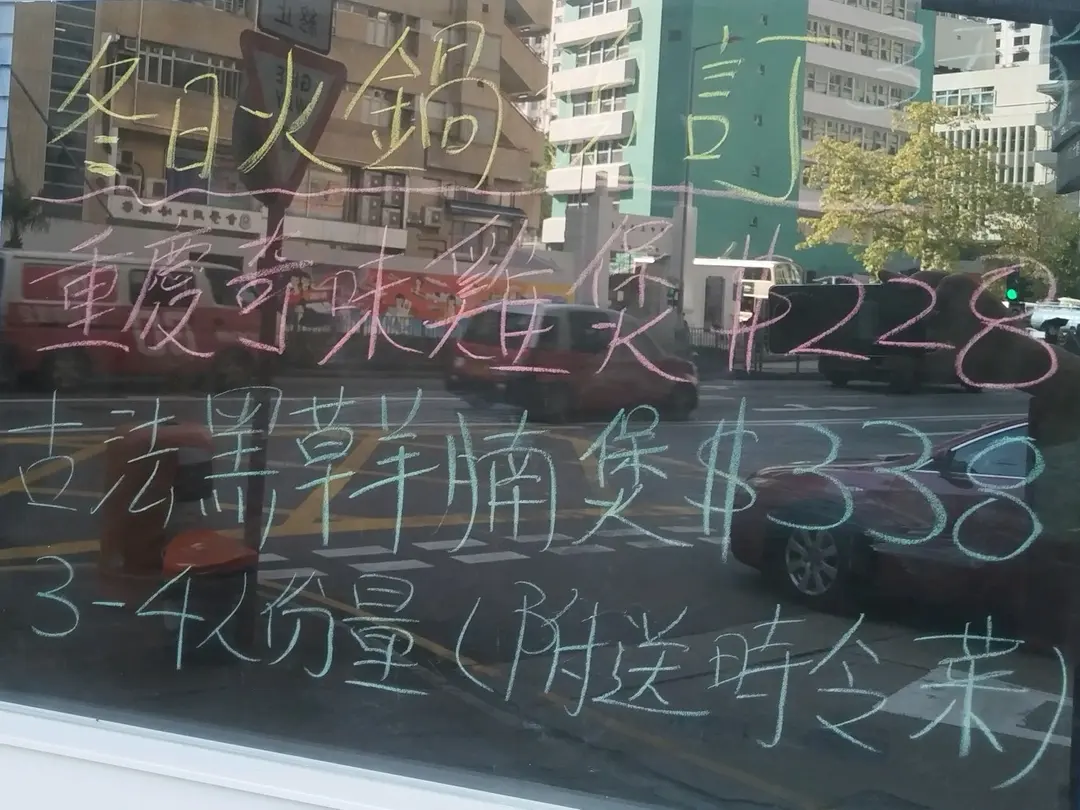 冬日火鍋預訂
重慶奇味雞煲 $228
古法黑草羊腩煲 $338
3-4人份量(附送時令菜)